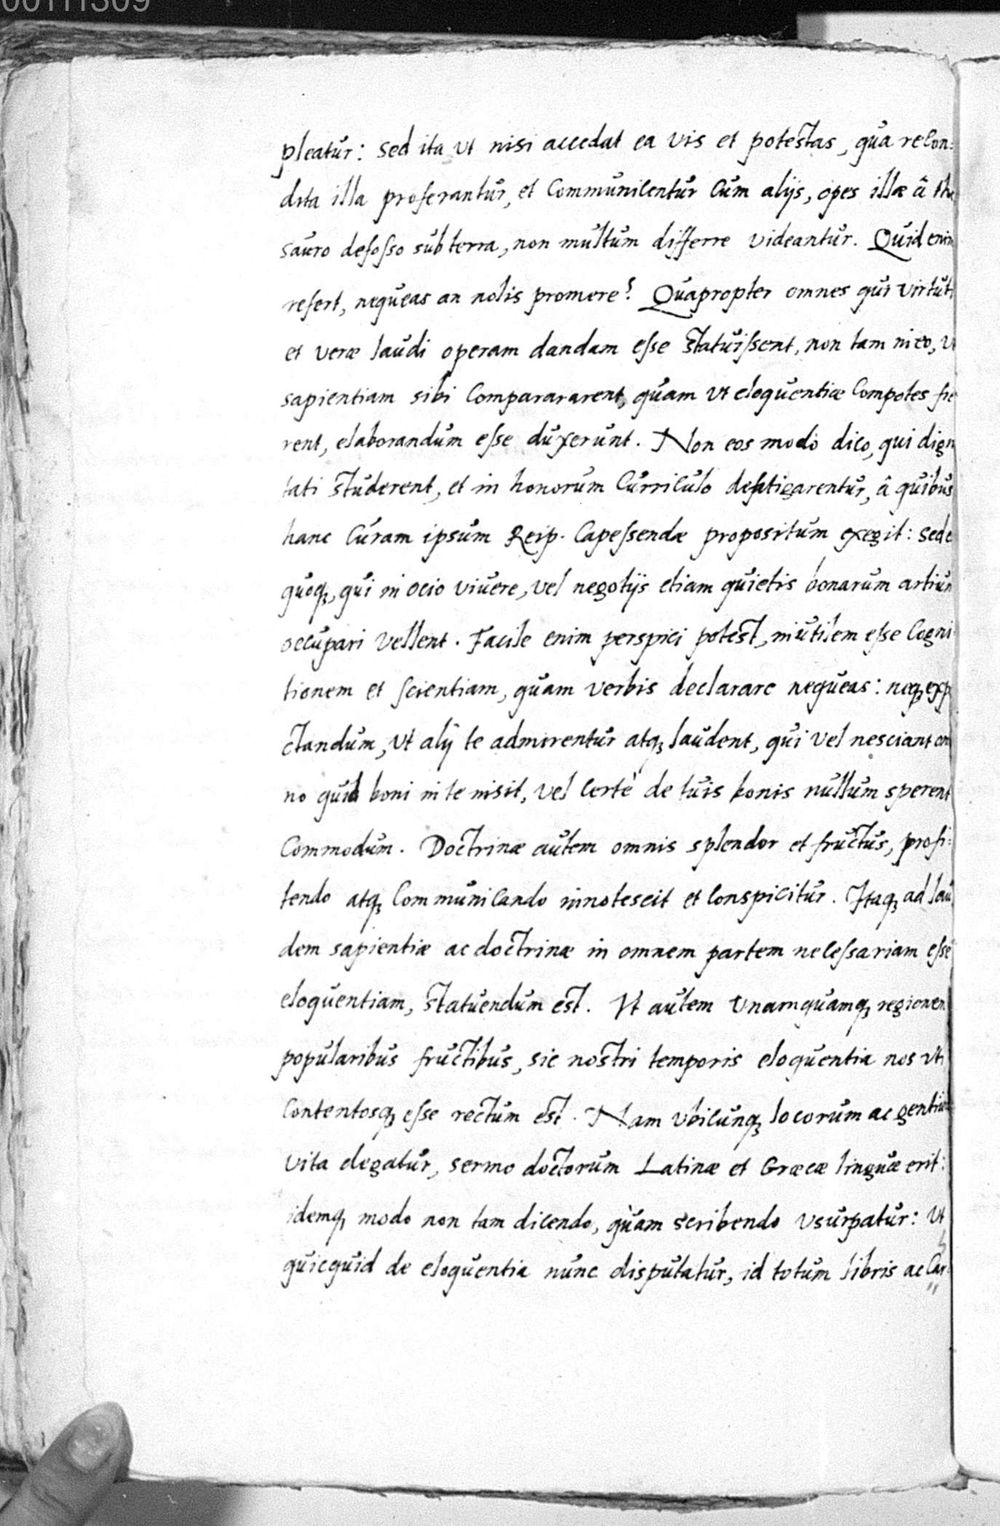 00111309
pleatur: sed ita ut nisi accedat ea vis et potestas, qua recon:
dita illa proferantur, et communicentur cum alijs, opes illæ â the
sauro defosso sub terra, non multum differre videantur. Quid enim
refert, nequeas an nolis promere? Quapropter omnes qui virtuti
et veræ laudi operam dandam esse statuissent, non tam in eo, ut
sapientiam sibi comparararent, quam ut eloquentiæ compotes fie
rent, elaborandum esse duxerunt. Non eos modò dico, qui digni
tati studerent, et in honorum curriculo defatigarentur, â quibus
hanc curam ipsum Reip. capessendæ propositum exegit: sed e
quoq, qui in ocio vivere, vel negotijs etiam quietis bonarum artium
occupari vellent. Facile enim perspici potest, inutilem esse cogni
tionem et scientiam, quam verbis declarare nequeas: neq, exp
ctandum, ut alij te admirentur atq, laudent, qui vel nesciant om
no quid boni in te insit, vel certè de tuis bonis nullum sperent
commodum. Doctrinæ autem omnis splendor et fructus, profi:
tendo atq, communicando innotescit et conspicitur. Itaq, ad lau
dem sapientiæ ac doctrinæ in omnem partem necessariam esse
eloquentiam, statuendum est. Ut autem unamquamq, regionem
popularibus fructibus, sic nostri temporis eloquentia nos uti
contentosq, esse rectum est. Nam ubicunq, locorum ac gentium
vita degatur, sermo doctorum Latinæ et Græcæ linguæ erit:
idemq, modo non tam dicendo, quam scribendo usurpatur: ut
quicquid de eloquentia nunc disputatur, id totum libris ac car